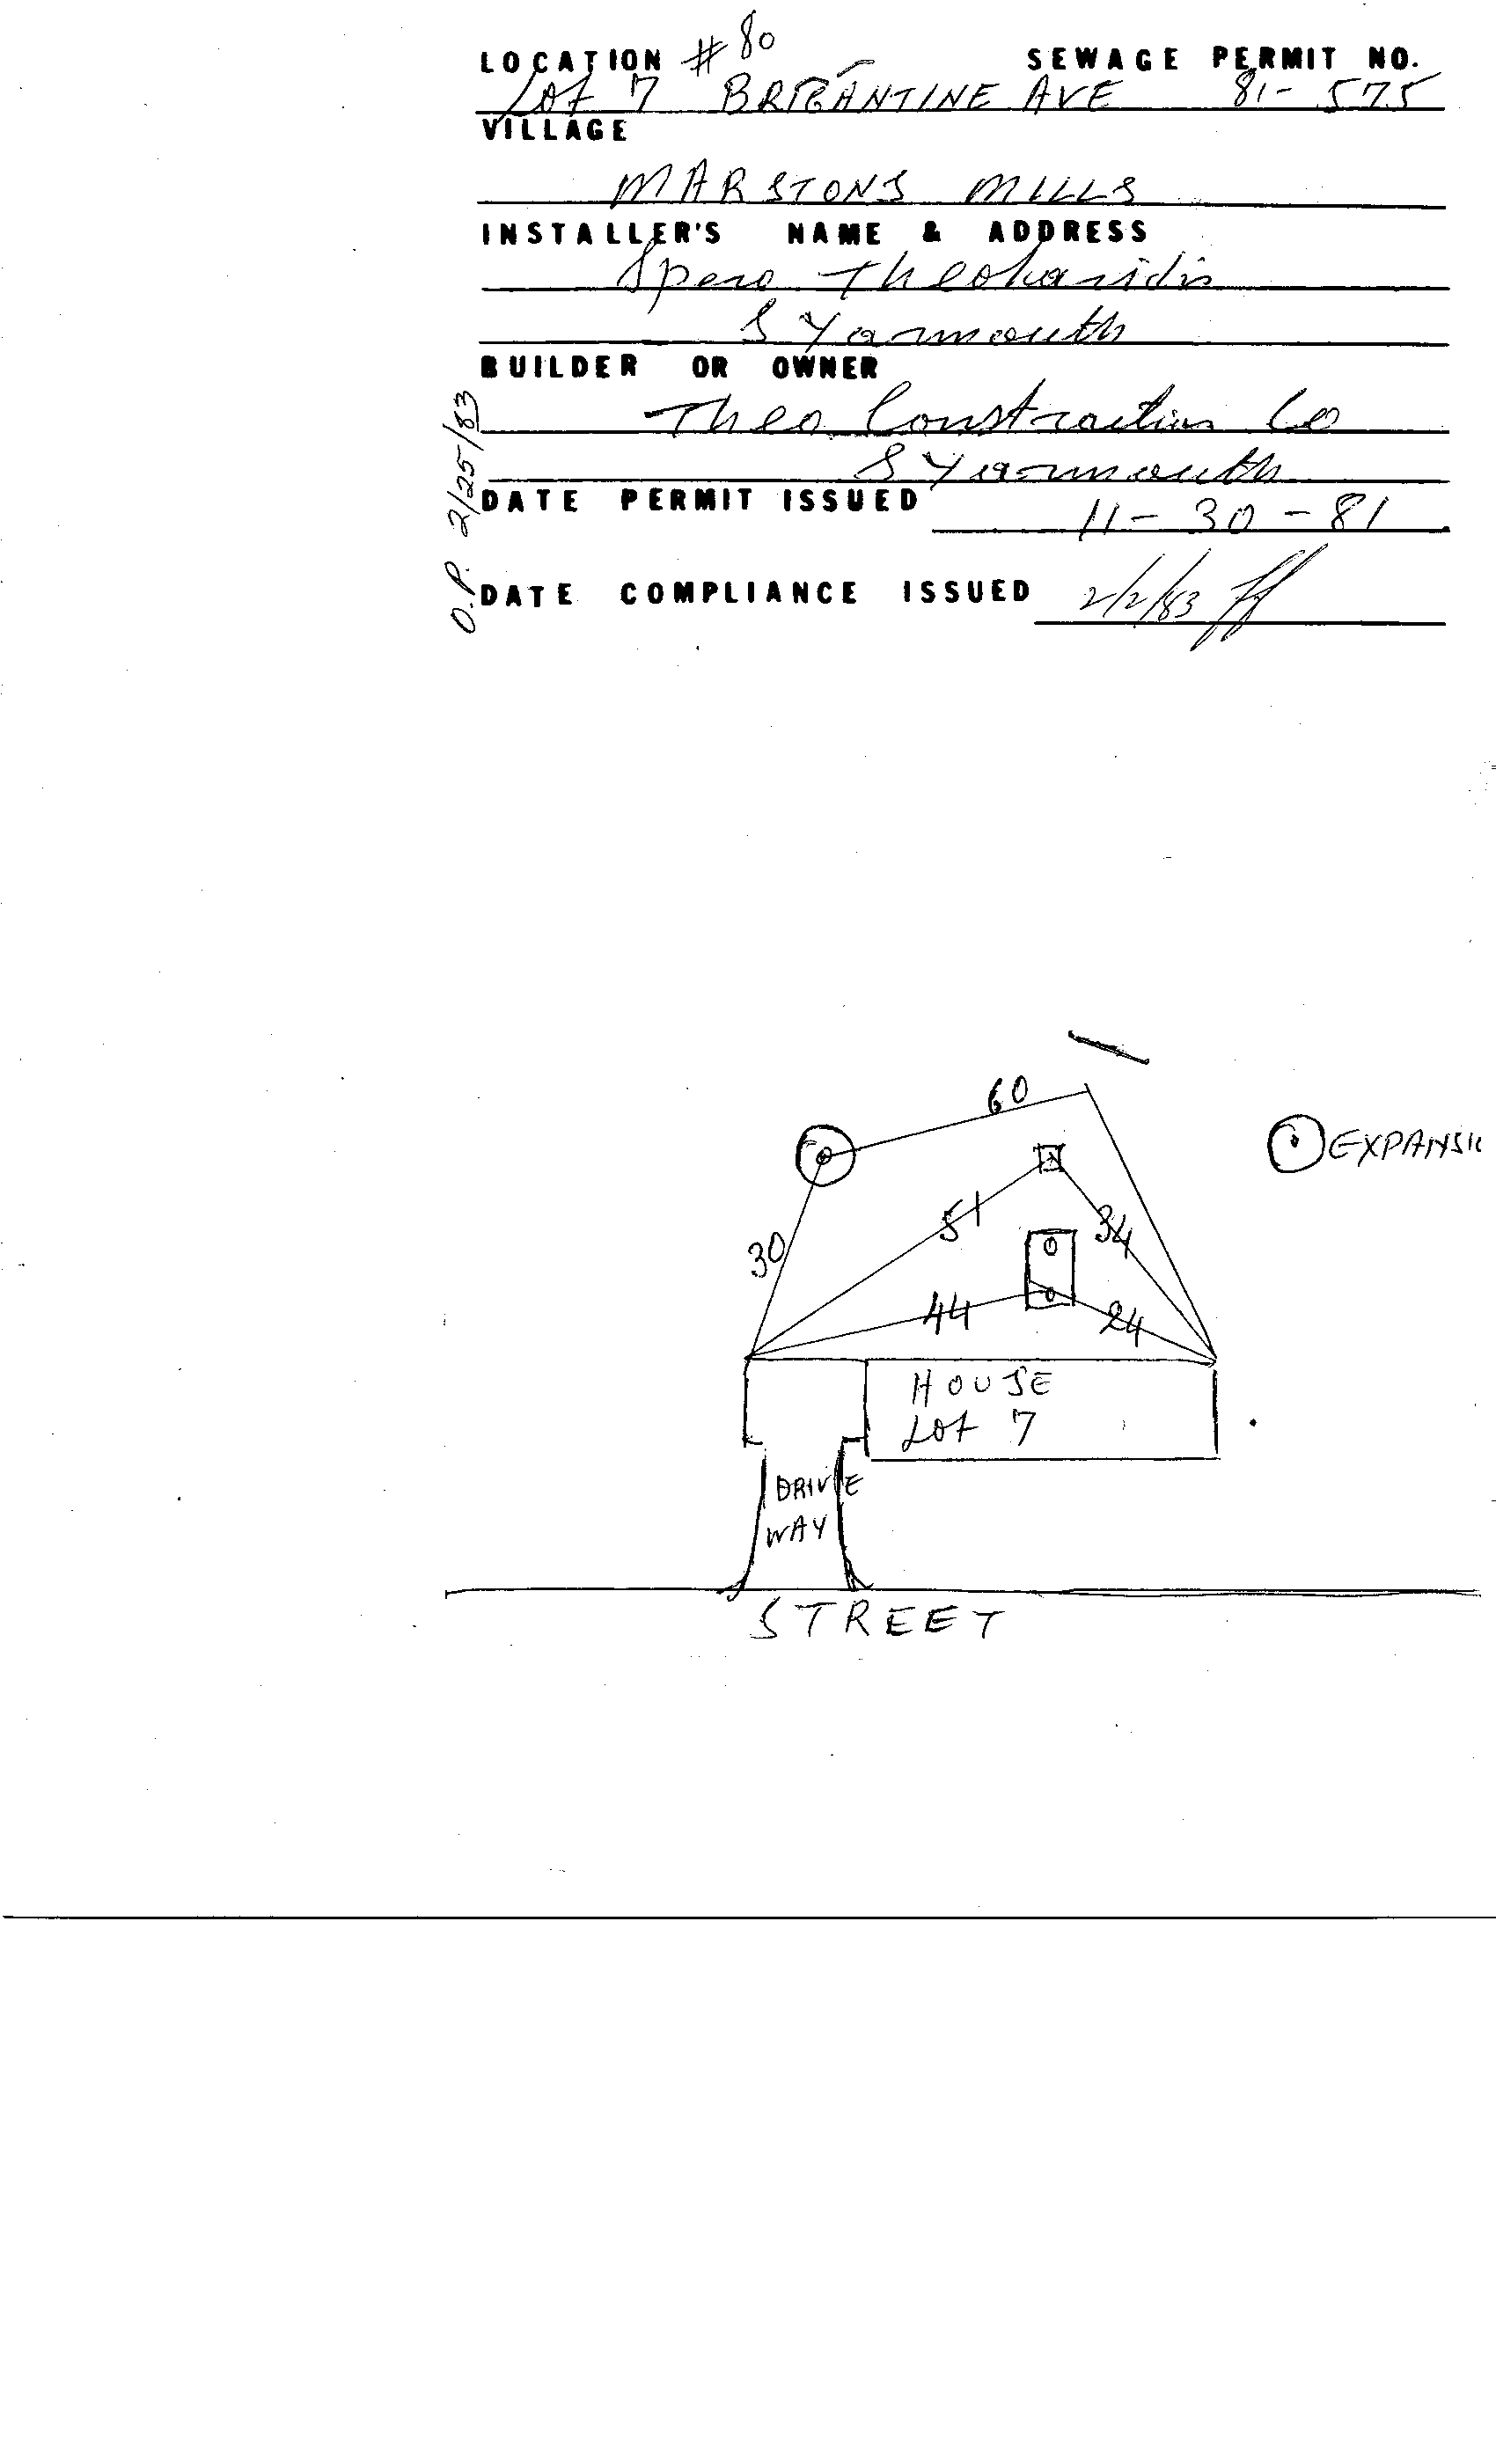 LOCATION #80 SEWAGE PERMIT NO.
Lot 7 BRIGANTINE AVE 81-575
VILLAGE
MARSTONS MILLS
INSTALLER'S NAME & ADDRESS
Spero Theoharidis
S Yarmouth
BUILDER OR OWNER
Theo Construction Co
S Yarmouth
DATE PERMIT ISSUED 11-30-81
DATE COMPLIANCE ISSUED 2/2/83
O.P. 2/25/83
60
EXPANSI
51
34
30
44
24
HOUSE
Lot 7
DRIVE
WAY
STREET